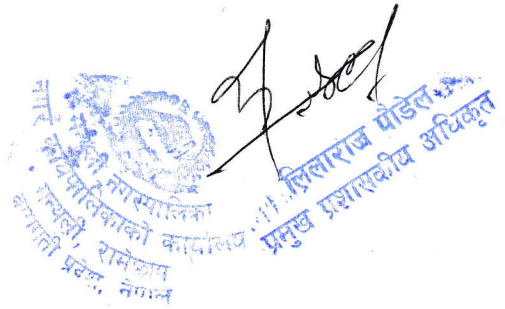 नगर कार्यपालिकाको कार्यालय
मन्थली, रामेछाप
बागमती प्रदेश, नेपाल
लिलाराज पौडेल
प्रमुख प्रशासकीय अधिकृत